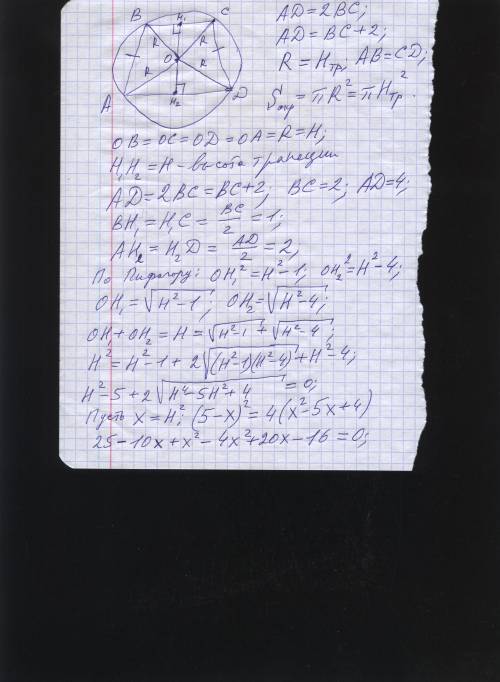 B H₁ C
R R
O
R R
A H₂ D
AD=2BC;
AD=BC+2;
R=Hтр, AB=CD;
Sокр=πR²=πHтр².
OB=OC=OD=OA=R=H;
H₁H₂=H-высота трапеции
AD=2BC=BC+2; BC=2; AD=4;
BH₁=H₁C=BC/2=1;
AH₂=H₂D=AD/2=2,
По Пифагору: OH₁²=H²-1; OH₂²=H²-4;
OH₁=√(H²-1); OH₂=√(H²-4);
OH₁+OH₂=H=√(H²-1)+√(H²-4);
H²=H²-1+2√((H²-1)(H²-4))+H²-4;
H²-5+2√(H⁴-5H²+4)=0;
Пусть x=H²; (5-x)²=4(x²-5x+4)
25-10x+x²-4x²+20x-16=0;